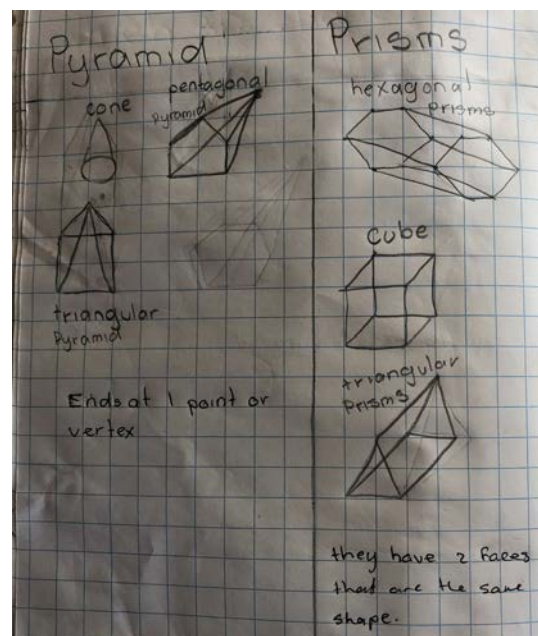 Pyramid
cone
pentagonal
pyramid
triangular
Pyramid
Ends at 1 point or
vertex
Prisms
hexagonal
Prisms
cube
triangular
Prisms
they have 2 faces
that are the same
shape.